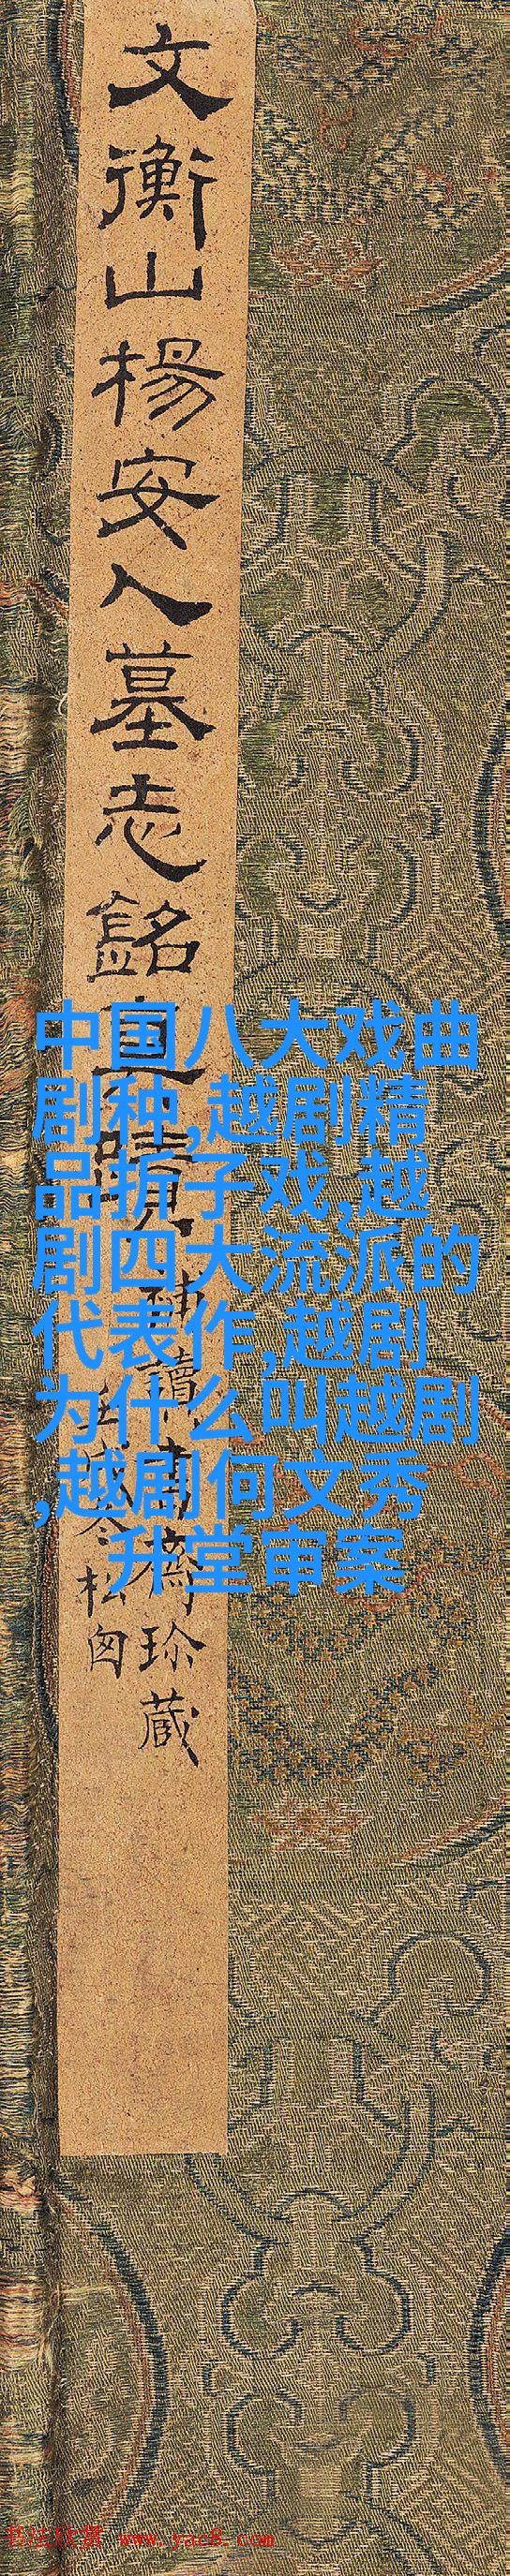 文衡山楊安人墓志銘真蹟
珍藏
中国八大戏曲
剧种,越剧精
品折子戏,越
剧四大流派的
代表作,越剧
为什么叫越剧
,越剧何文秀
升堂审案
书法欣赏 www.yac8.com